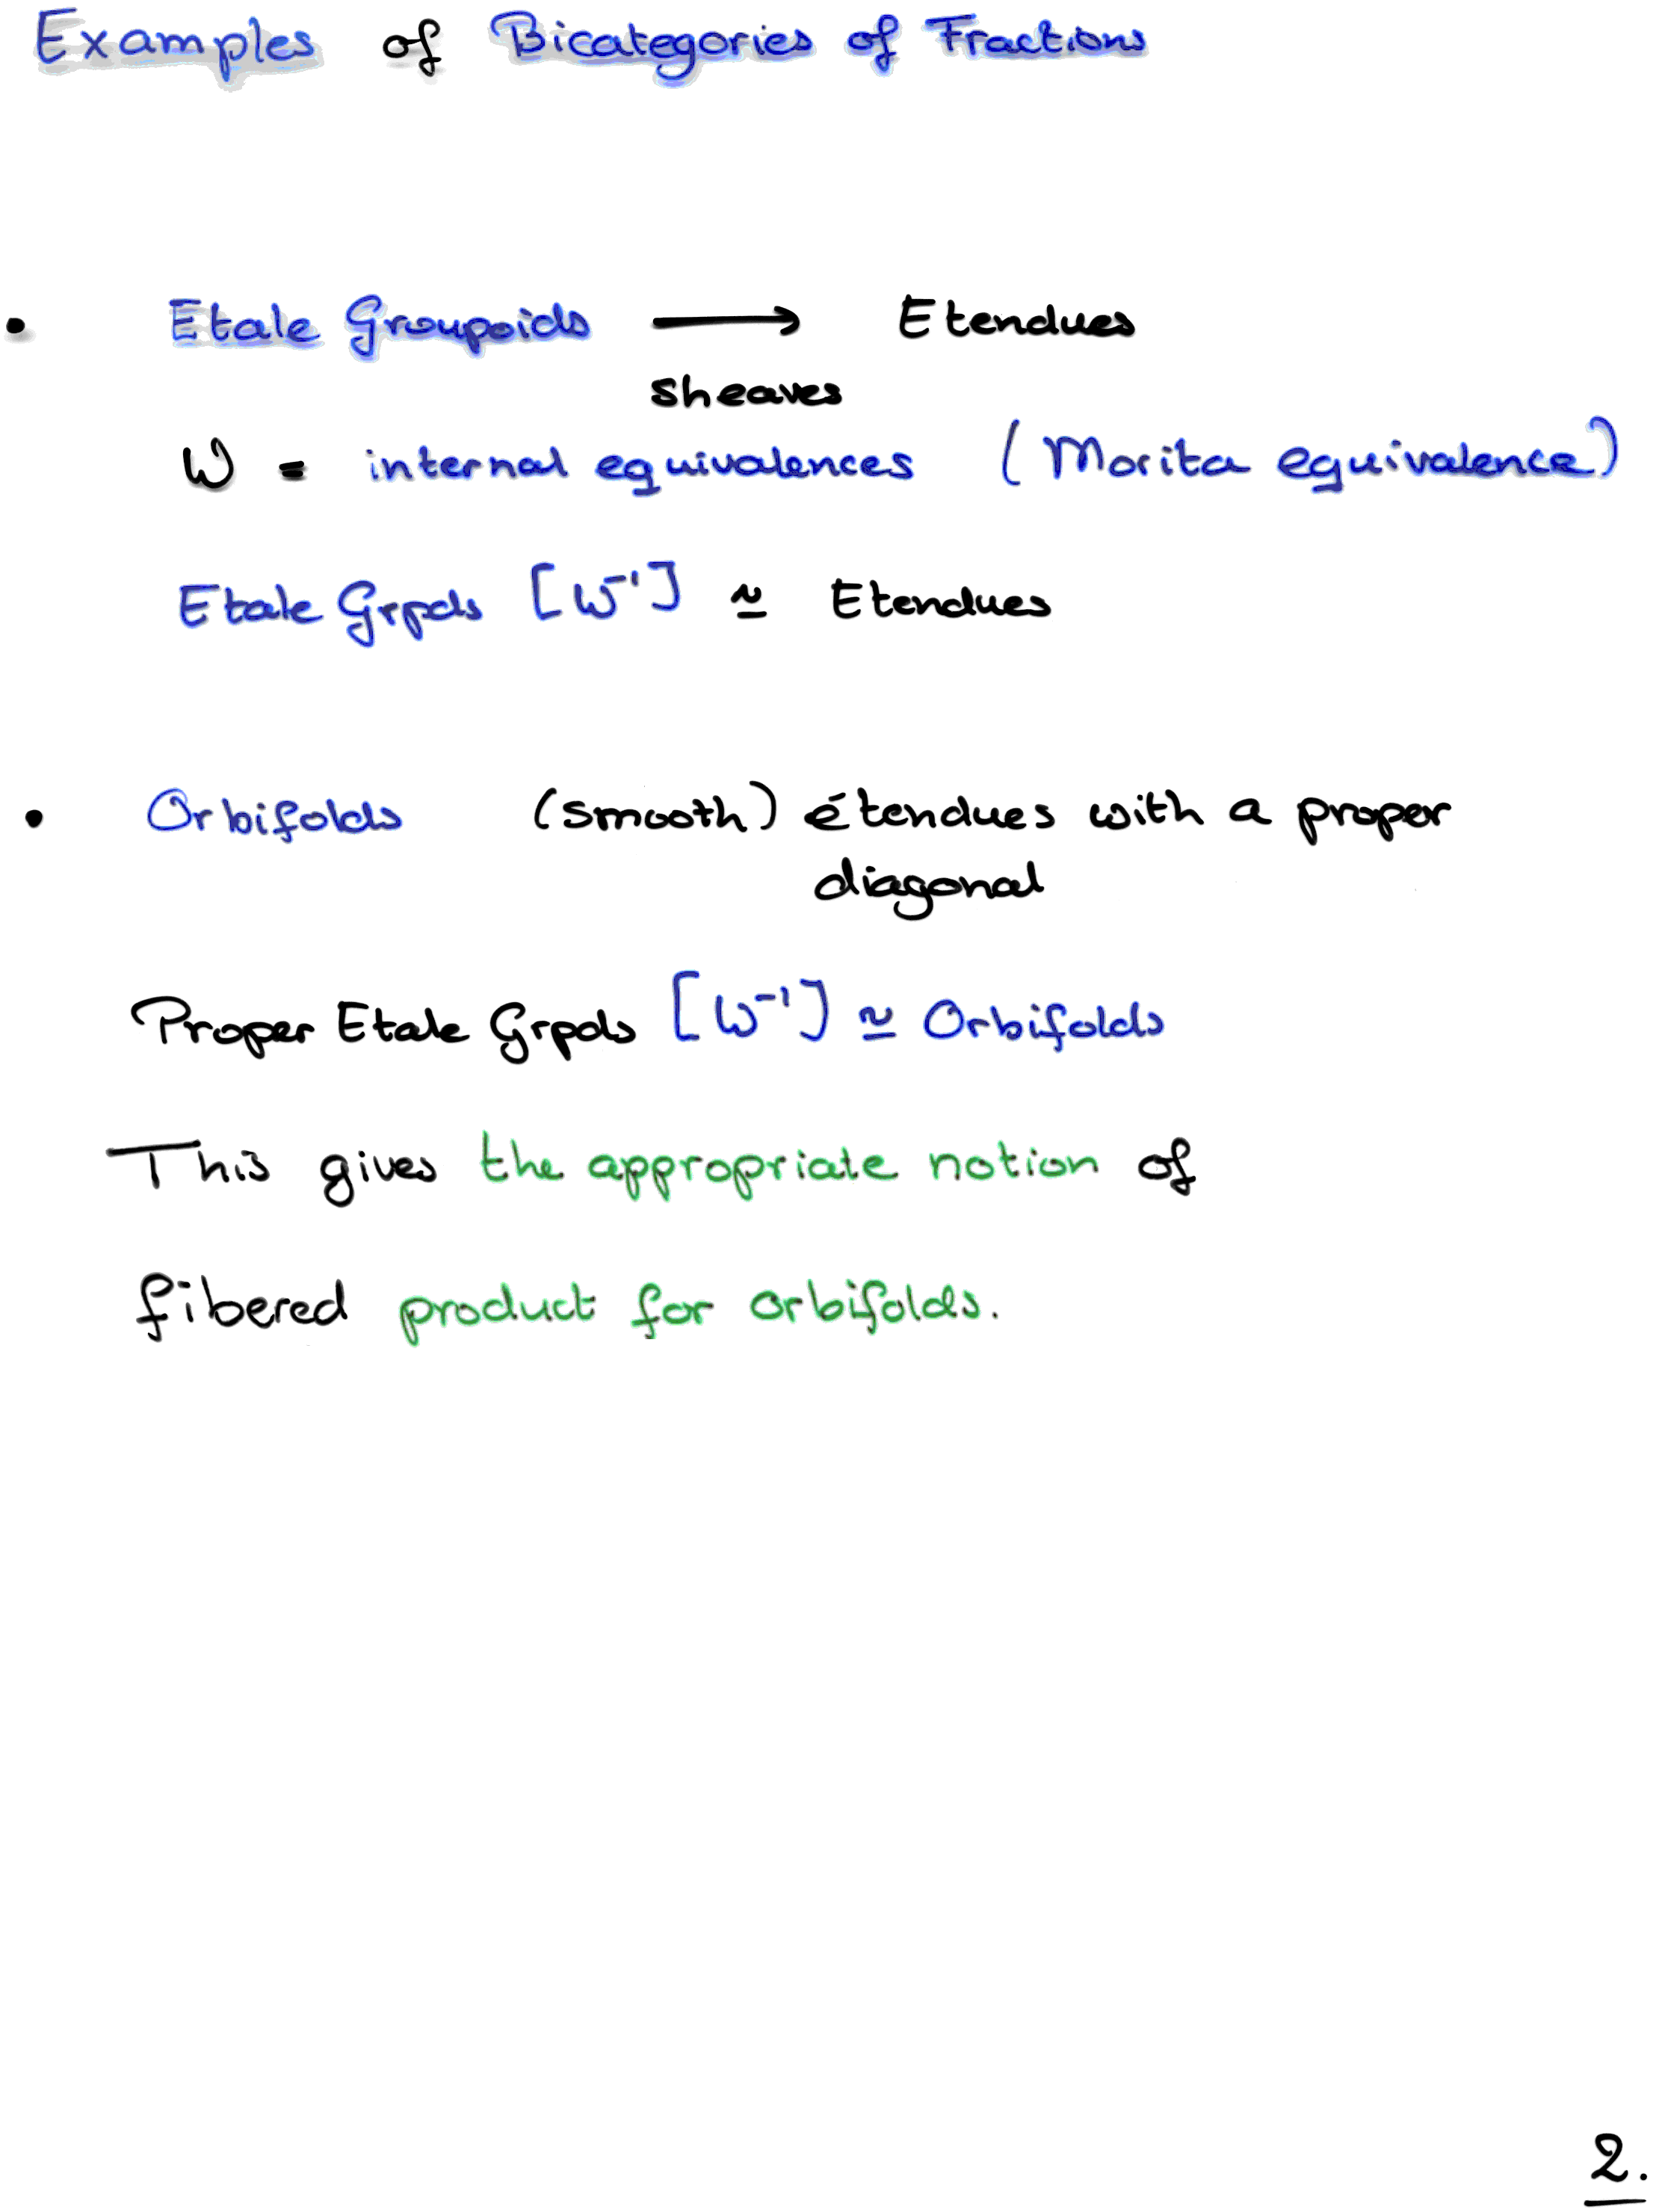 Examples of Bicategories of Fractions
• Etale Groupoids ⟶ Etendues
sheaves
W = internal equivalences (Morita equivalence)
Etale Grpds [W⁻¹] ≃ Etendues
• Orbifolds (smooth) étendues with a proper
diagonal
Proper Etale Grpds [W⁻¹] ≃ Orbifolds
This gives the appropriate notion of
fibered product for orbifolds.
2.